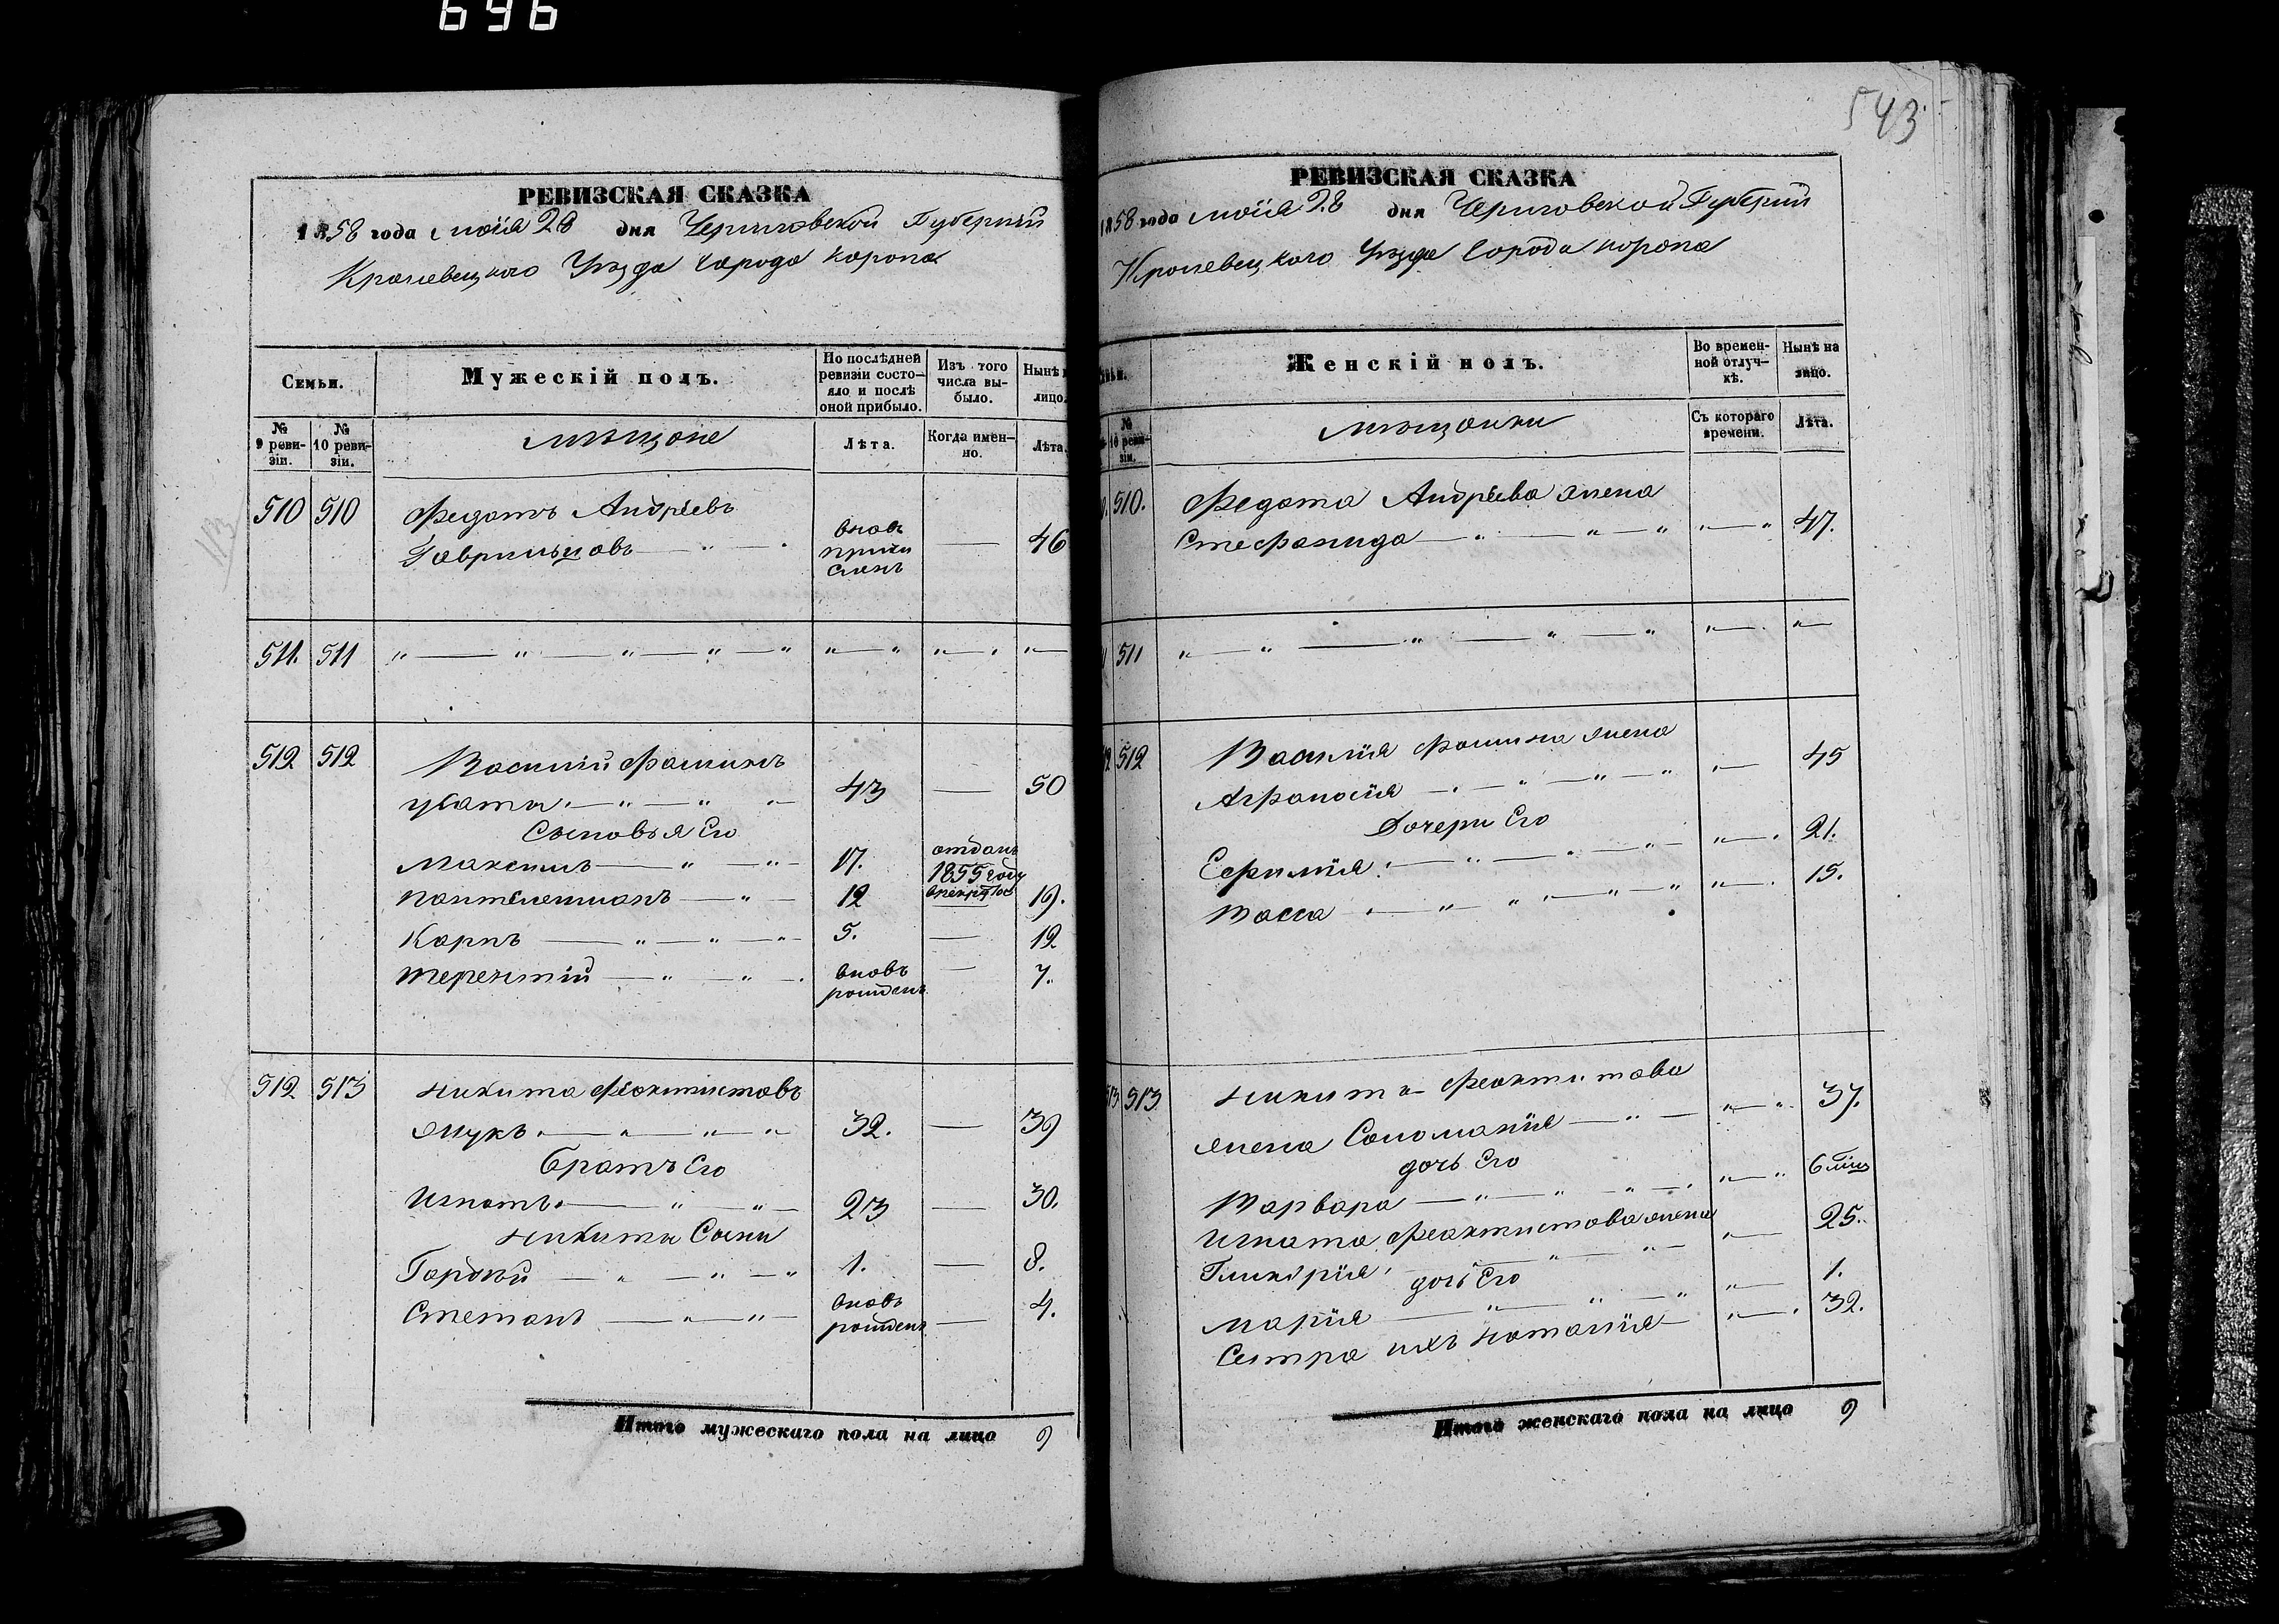 696
543
РЕВИЗСКАЯ СКАЗКА
1858 года маія 28 дня Черниговской Губерніи
Кролевецкого Уѣзда Города Коропа
Семьи.
Мужескій полъ.
По послѣдней ревизіи состо-
яло и послѣ оной прибыло.
Изъ того числа вы-
было.
Нынѣ
лицо.
№ 9 реви-
зіи.
№ 10 реви-
зіи.
мѣщане
Лѣта.
Когда имен-
но.
Лѣта.
510 510 Федотъ Андрѣевъ
Гаврильцовъ вновь причи слѣнъ — 46
511. 511
512 512 Василій Фоминъ
43 — 50
Сыновья Его
Максимъ 17. отданъ 1855 году
Пантелеимонъ 12 — 19.
Карпъ 5. — 12
Терентій вновь рожденъ — 7.
512 513 Никита Феоктистовъ
Жукъ 32. — 39
братъ Его
Игнатъ 23 — 30.
Никиты Сыны
Гордѣй 1. — 8.
Степанъ вновь рожденъ — 4.
Итого мужескаго пола на лицо 9
РЕВИЗСКАЯ СКАЗКА
1858 года маія 28 дня Черниговской Губерніи
Кролевецкого Уѣзда Города Коропа
Женскій полъ.
Во времен-
ной отлуч-
кѣ.
Нынѣ на
лицо.
№
10 реви-
зіи.
мѣщанки
Съ котораго
времени.
Лѣта.
510. Федота Андрѣева жена
Стефанида 47.
511
512 Василія Фомина жена
Афанасія 45
Дочери Его
Ефимія 21.
Васса 15.
513 513 Никиты Феоктистова
жена Соломанія 37.
дочь Его
Варвара 6 міс
Игната Феоктистова жена 25.
Гликѣрія
дочь Его
Марія 1.
Сестра ихъ Наталія 32.
Итого женскаго пола на лицо 9